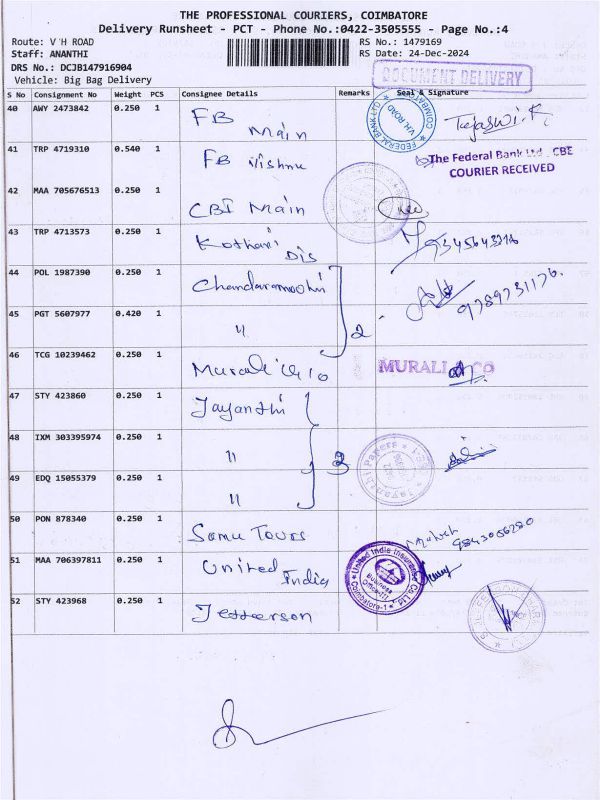 THE PROFESSIONAL COURIERS, COIMBATORE
Delivery Runsheet - PCT - Phone No.:0422-3505555 - Page No.:4
Route: V H ROAD RS No.: 1479169
Staff: ANANTHI RS Date: 24-Dec-2024
DRS No.: DCJB147916904
Vehicle: Big Bag Delivery
DOCUMENT DELIVERY
S No Consignment No Weight PCS Consignee Details Remarks Seal & Signature
40 AWY 2473842 0.250 1 FB Main
FEDERAL BANK LTD COIMBATORE V.H. ROAD
41 TRP 4719310 0.540 1 FB Vishnu
The Federal Bank Ltd., CBE
COURIER RECEIVED
42 MAA 705676513 0.250 1 CBI Main
43 TRP 4713573 0.250 1 Kothari Dis
44 POL 1987390 0.250 1 Chandaramoohi
9789731176.
45 PGT 5607977 0.420 1 " 2
46 TCG 10239462 0.250 1 Murali & Co
MURALI & CO
47 STY 423860 0.250 1 Jayanthi
48 IXM 303395974 0.250 1 " 3
Jayanthi Papers
49 EDQ 15055379 0.250 1 "
50 PON 878340 0.250 1 Somu Tours
9843056280
51 MAA 706397811 0.250 1 United India
United India Insurance Co. Ltd. Business Office-III Coimbatore-1
52 STY 423968 0.250 1 Jefferson